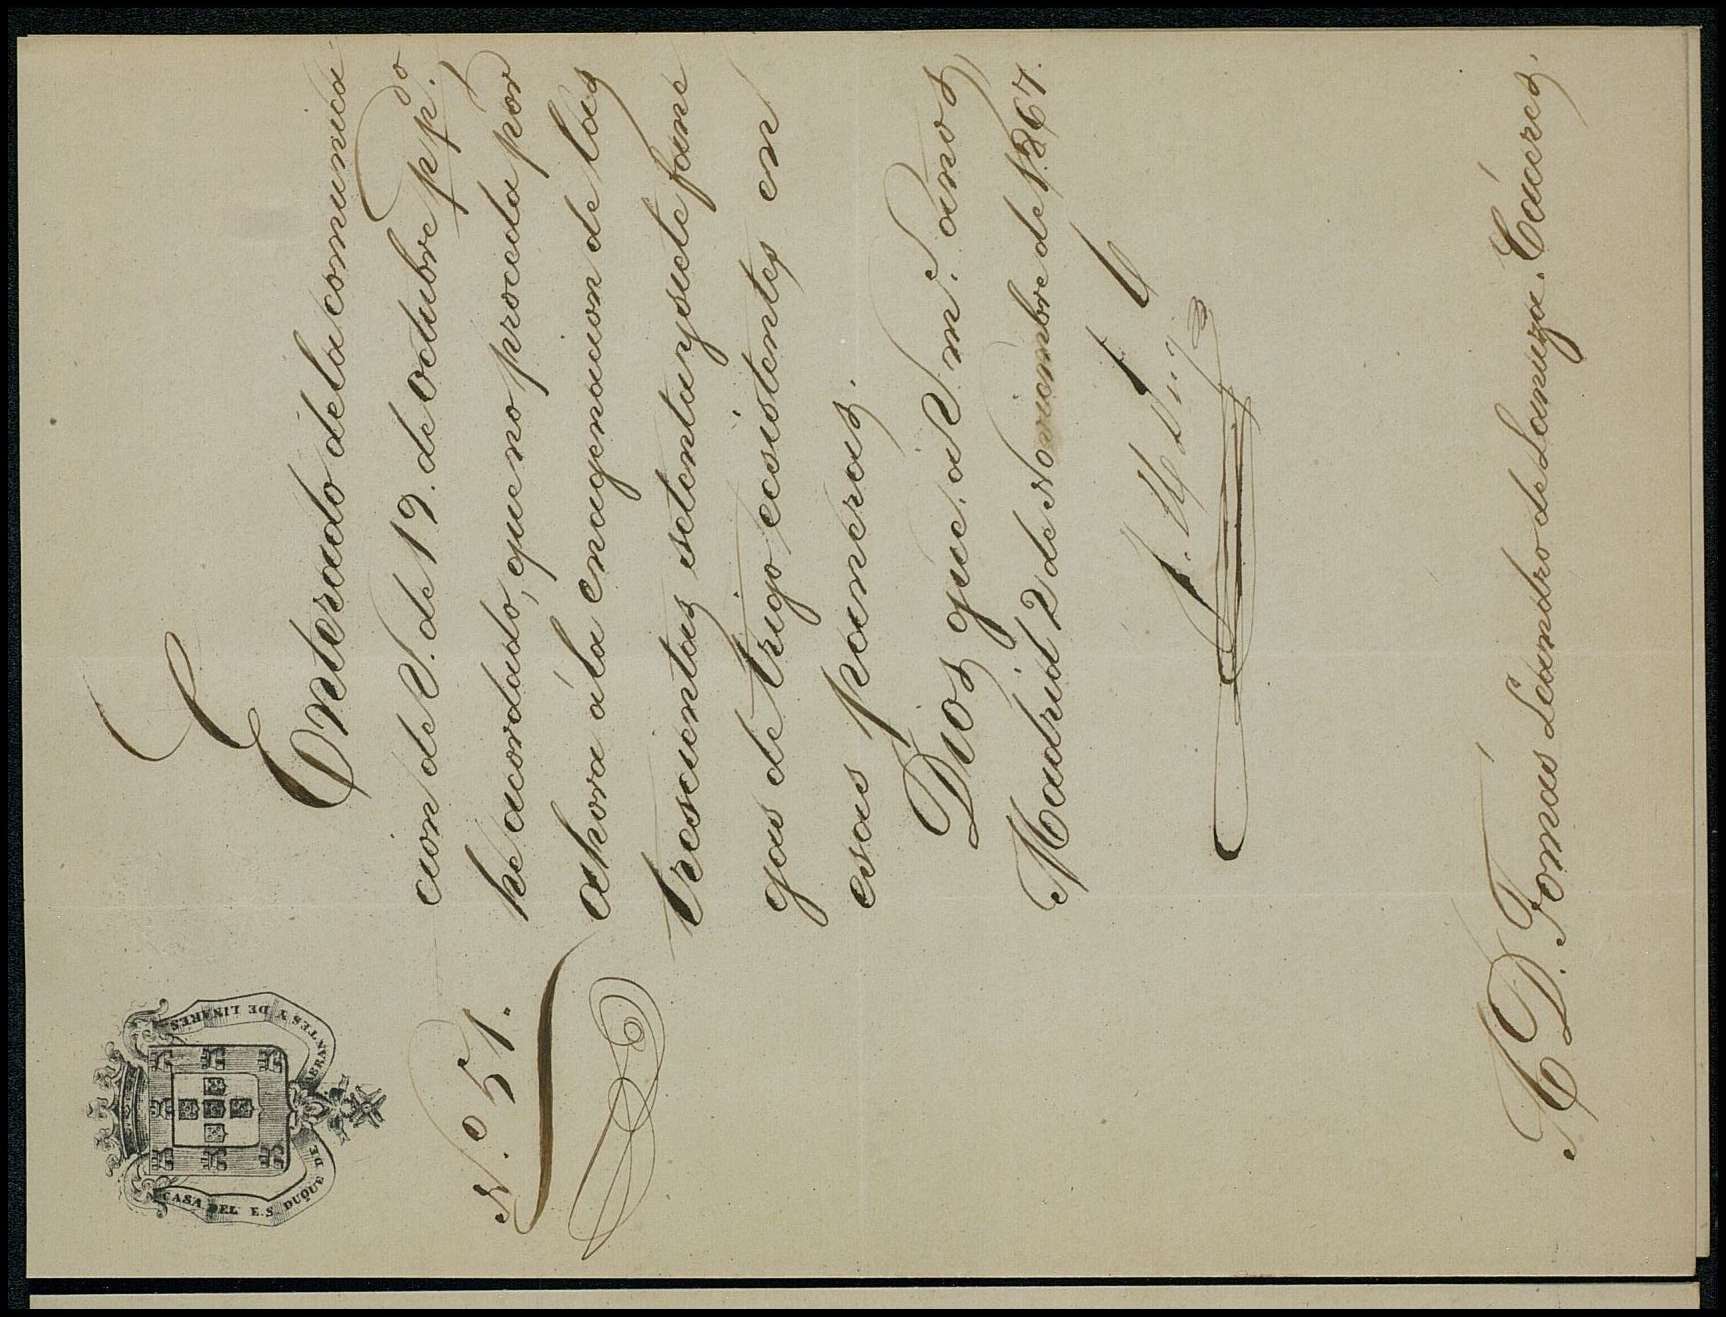 CASA DEL E.S. DUQUE DE ABRANTES Y DE LINARES
N.º 51.
Enterado de la comunica
cion de V. de 19. de Octubre pp.do
he acordado, que no proceda por
ahora á la enagenacion de las
trescientas setenta y siete fane
gas de trigo ecsistentes en
esas paneras.
Dios gue. a V. m.s anos
Madrid 2 de Noviembre de 1.867.
A D. Tomás Leandro de Lanuza. Cáceres.